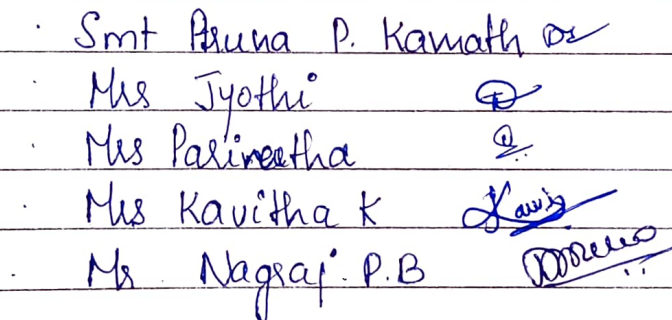 Smt Aruna P. Kamath
Mrs Jyothi
Mrs Parineetha
Mrs Kavitha K
Mr Nagraj. P.B